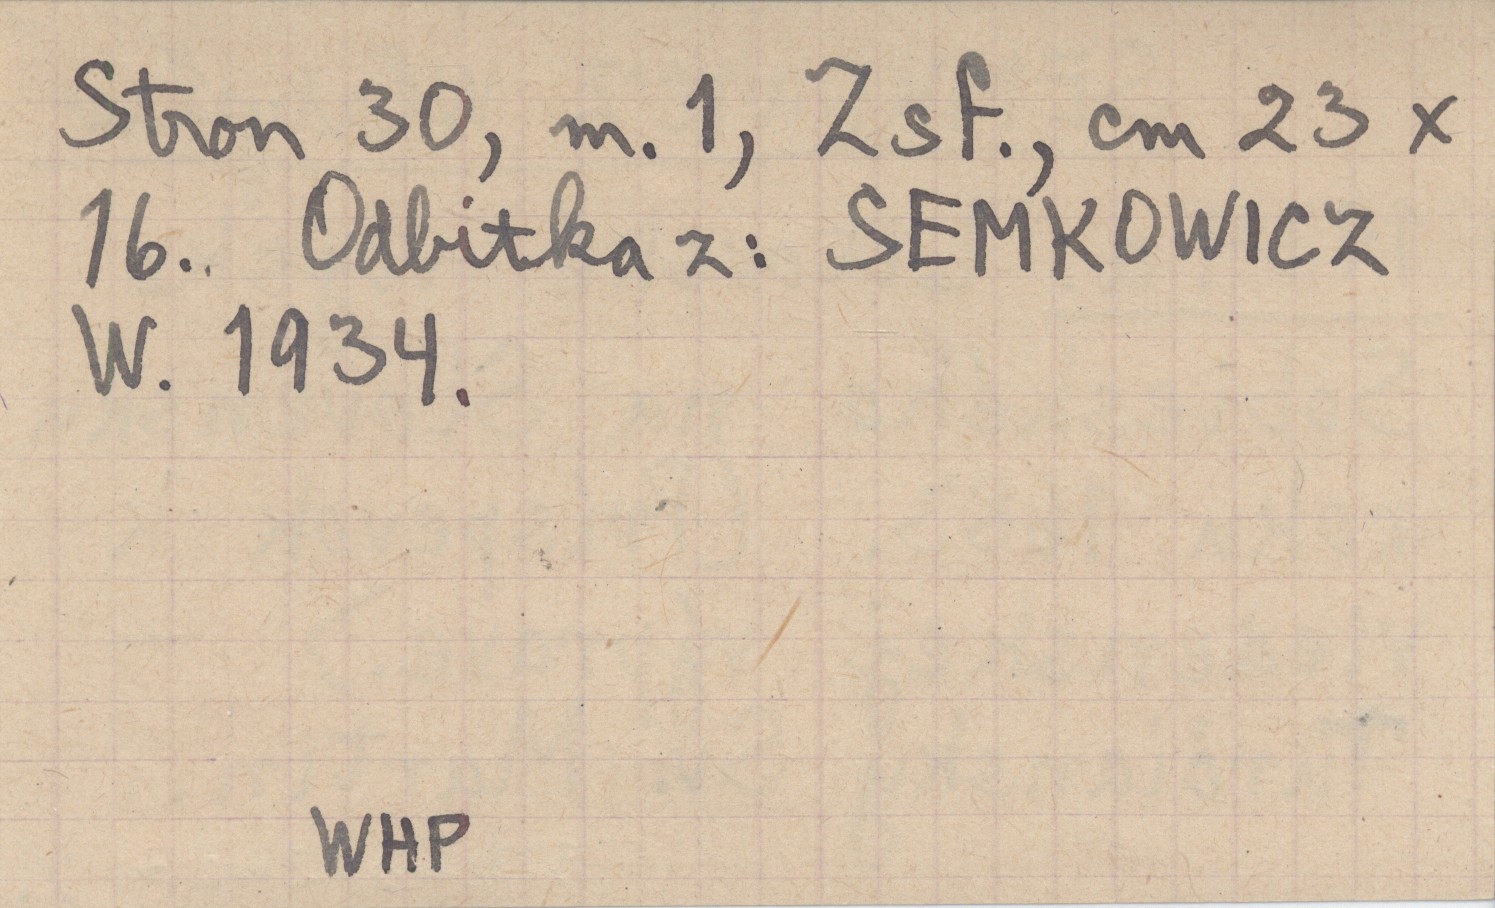 Stron 30, m. 1, Zsf., cm 23 x
16. Odbitka z: SEMKOWICZ
W. 1934.
WHP